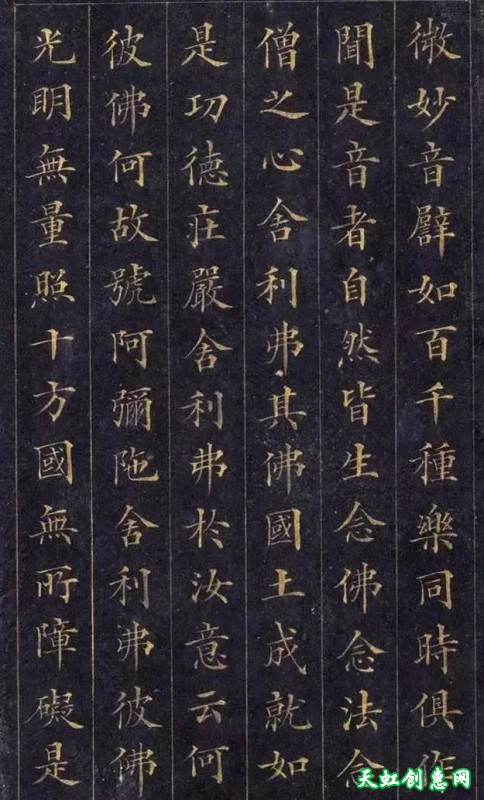 微妙音譬如百千種樂同時俱作
聞是音者自然皆生念佛念法念
僧之心舍利弗其佛國土成就如
是功德莊嚴舍利弗於汝意云何
彼佛何故號阿彌陁舍利弗彼佛
光明無量照十方國無所障礙是
天虹创惠网